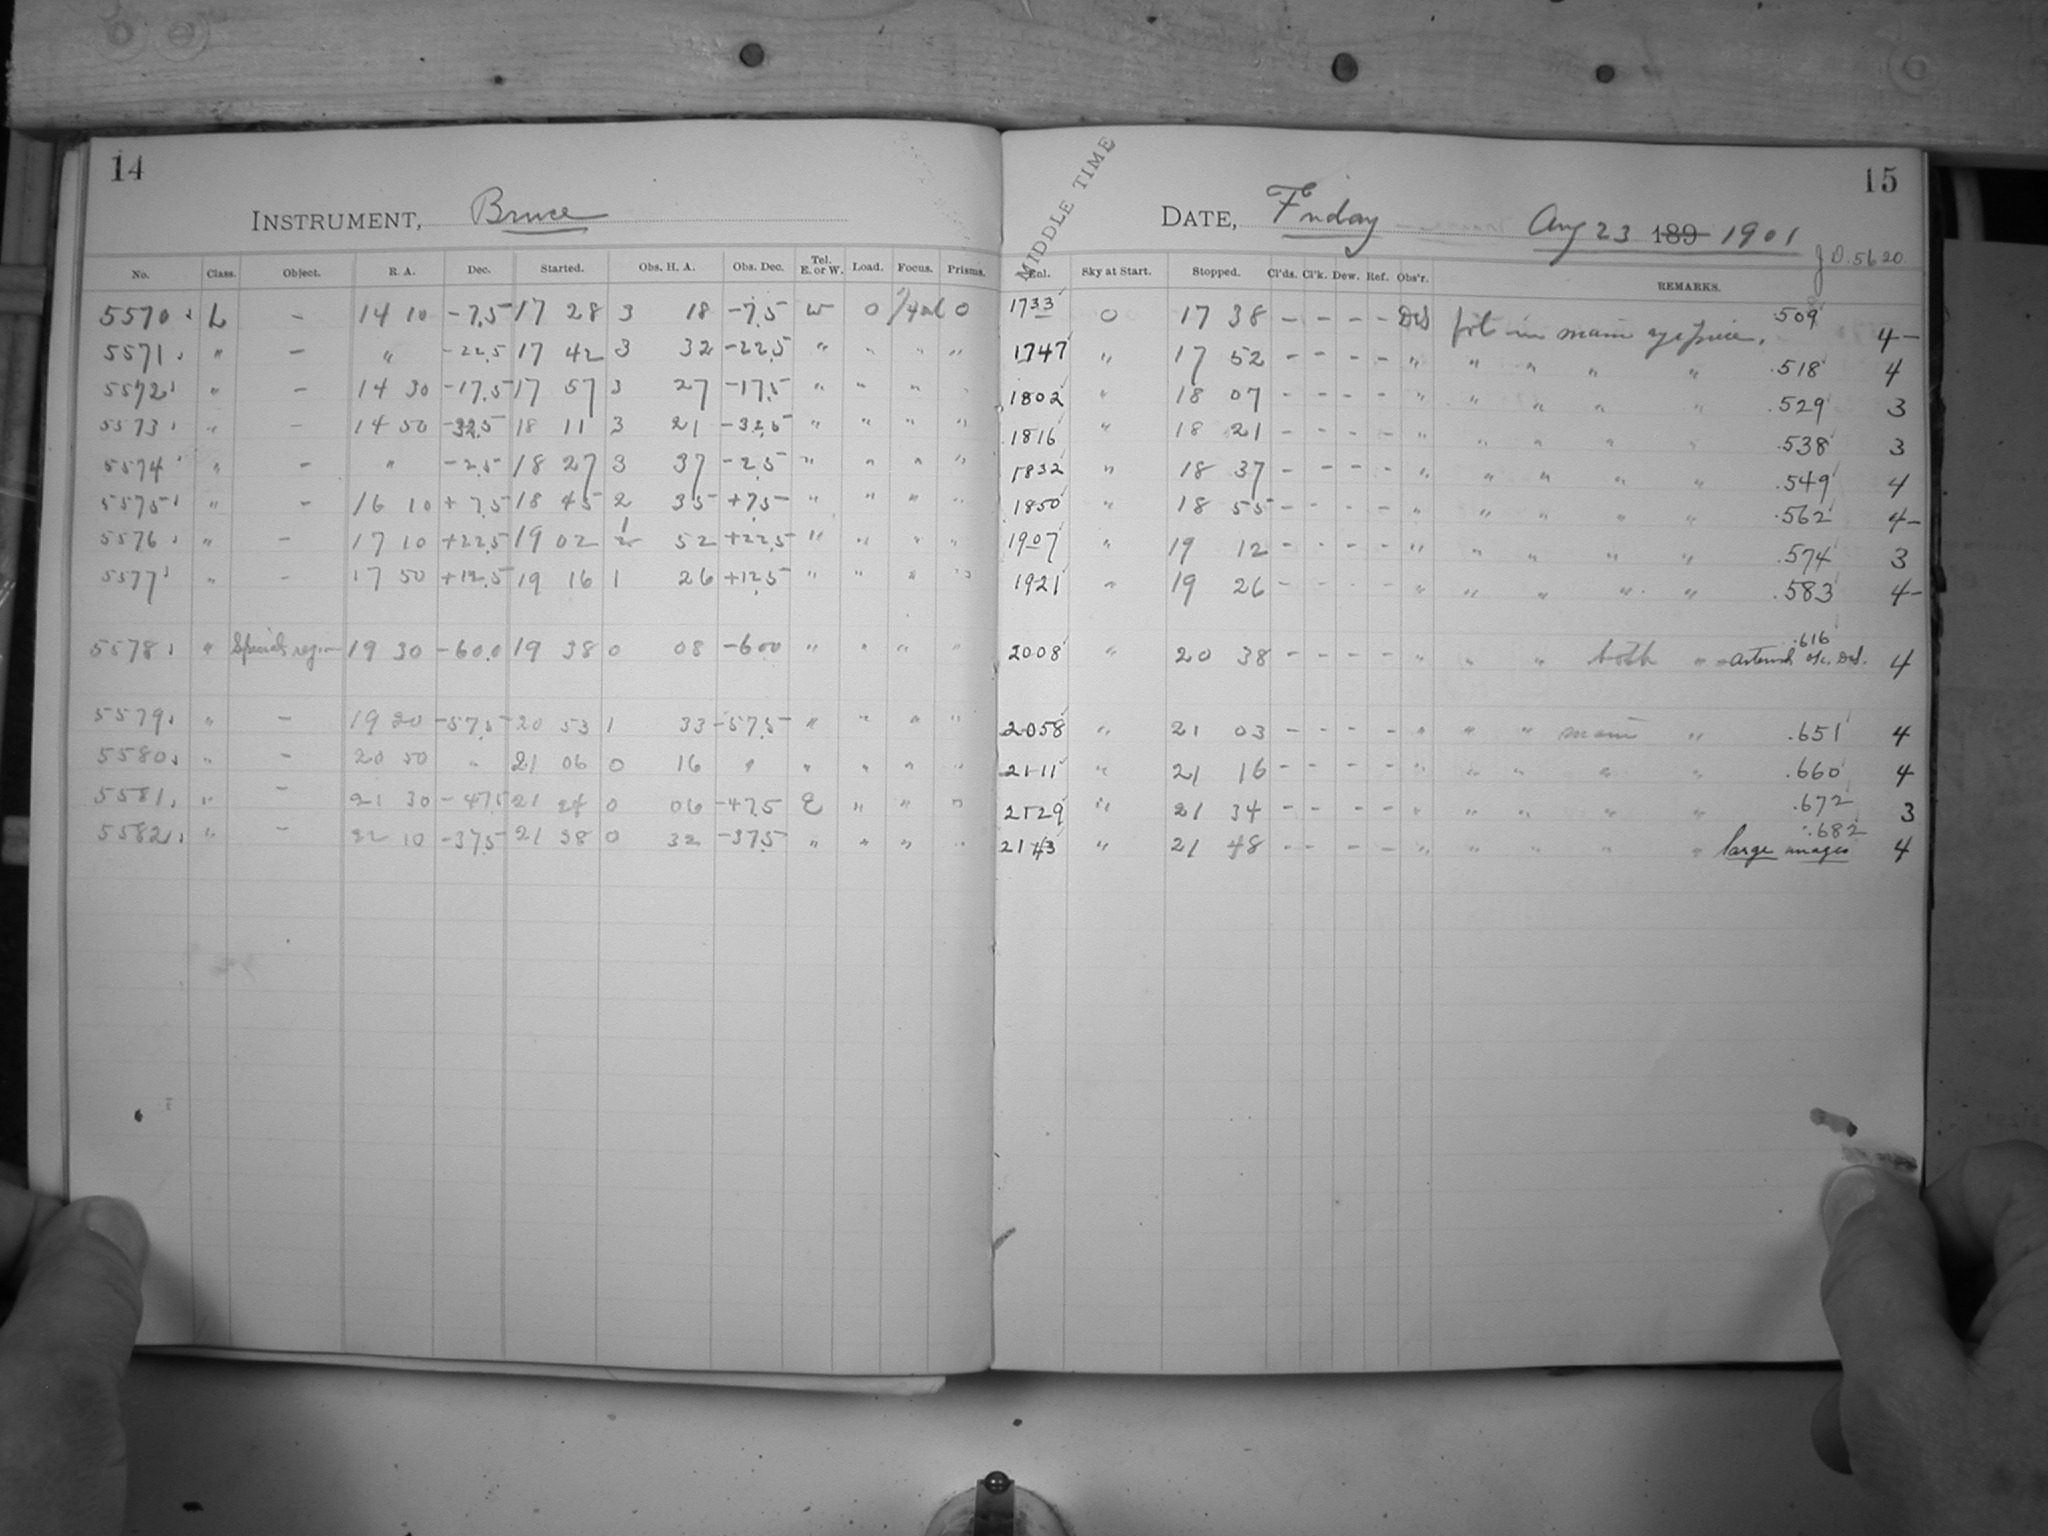 14
INSTRUMENT, Bruce
No. Class. Object. R. A. Dec. Started. Obs. H. A. Obs. Dec. Tel. E. or W. Load. Focus. Prisms.
5570 L - 14 10 -7.5 17 28 3 18 -7.5 W 0 0
5571 " - " -22.5 17 42 3 32 -22.5 " " " "
5572 " - 14 30 -17.5 17 57 3 27 -17.5 " " " "
5573 " - 14 50 -32.5 18 11 3 21 -32.5 " " " "
5574 " - " -2.5 18 27 3 37 -2.5 " " " "
5575 " - 16 10 +7.5 18 45 2 35 +7.5 " " " "
5576 " - 17 10 +22.5 19 02 1 52 +22.5 " " " "
5577 " - 17 50 +12.5 19 16 1 26 +12.5 " " " "
5578 " Special region 19 30 -60.0 19 38 0 08 -60.0 " " " "
5579 " - 19 20 -57.5 20 53 1 33 -57.5 " " " "
5580 " - 20 50 " 21 06 0 16 " " " " "
5581 " - 21 30 -47.5 21 24 0 06 -47.5 E " " "
5582 " - 22 10 -37.5 21 38 0 32 -37.5 " " " "
15
MIDDLE TIME
DATE, Friday Aug 23 189 1901
J D. 5620
Enl. Sky at Start. Stopped. Cl'ds. Cl'k. Dew. Ref. Obs'r. REMARKS.
1733 0 17 38 - - - - fol. in main eyepiece. .509 4-
1747 " 17 52 - - - - " " " " " .518 4
1802 " 18 07 - - - - " " " " " .529 3
1816 " 18 21 - - - - " " " " " .538 3
1832 " 18 37 - - - - " " " " " .549 4
1850 " 18 55 - - - - " " " " " .562 4-
1907 " 19 12 - - - - " " " " " .574 3
1921 " 19 26 - - - - " " " " " .583 4-
2008 " 20 38 - - - - " " " both " .616 4
2058 " 21 03 - - - - " " " main " .651 4
2111 " 21 16 - - - - " " " " " .660 4
2129 " 21 34 - - - - " " " " " .672 3
2143 " 21 48 - - - - " " " " " .682 large images 4